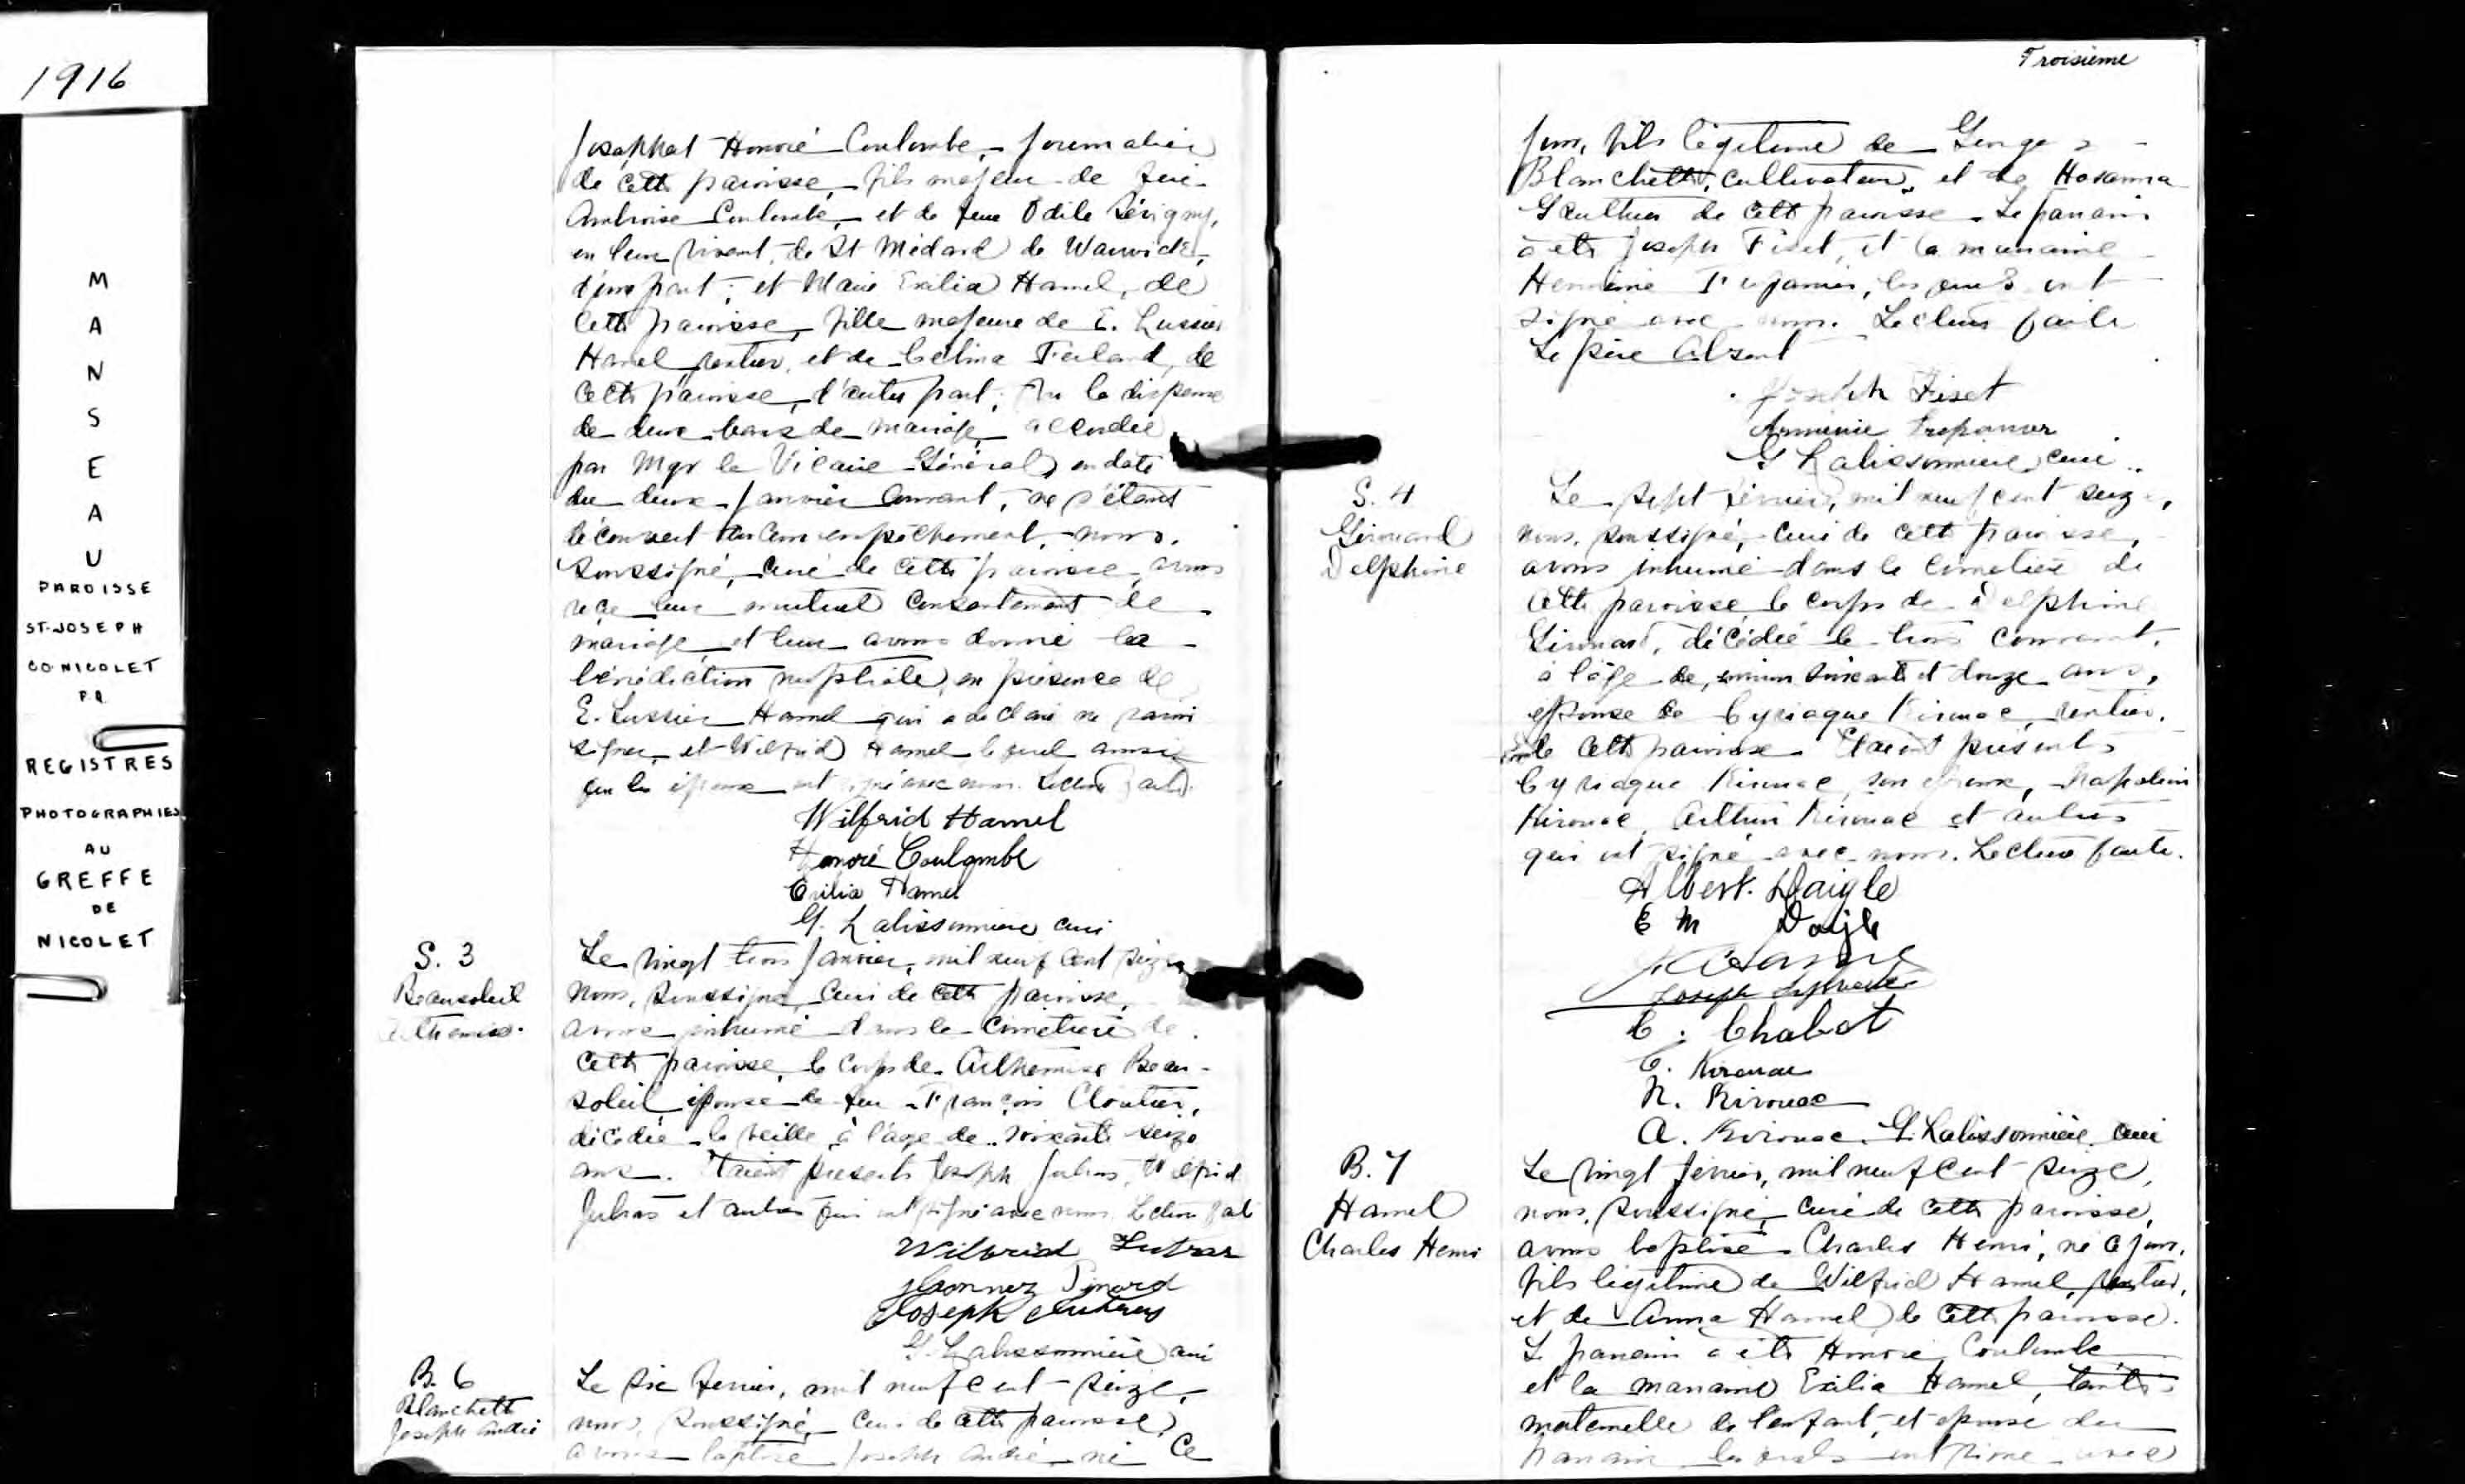 1916
MANSEAU
PAROISSE
ST-JOSEPH
CO NICOLET
P.Q.
REGISTRES
PHOTOGRAPHIES
AU
GREFFE
DE
NICOLET
Josaphat Honoré Coulombe, journalier
de cette paroisse, fils majeur de feu
Ambroise Coulombe, et de feue Odile Sévigny,
en leur vivant, de St Médard de Warwick,
d'une part; et Marie Exilia Hamel, de
cette paroisse, fille majeure de E. Lussier
Hamel, rentier, et de Celina Ferland, de
cette paroisse, d'autre part; Vu la dispense
de deux bans de mariage accordée
par Mgr le Vicaire Général, en date
du deux janvier courant, ne s'étant
découvert aucun empêchement, nous,
soussigné, curé de cette paroisse, avons
reçu leur mutuel consentement de
mariage et leur avons donné la
bénédiction nuptiale, en présence de
E. Lussier Hamel qui a déclaré ne savoir
signer, et Wilfrid Hamel lequel ainsi
que les époux ont signé avec nous. Lecture faite.
Wilfrid Hamel
Honoré Coulombe
Exilia Hamel
G. Lalissonnière curé
S. 3
Beausoleil
Arthemise
Le vingt trois janvier, mil neuf cent seize,
nous, soussigné, curé de cette paroisse,
avons inhumé dans le cimetière de
cette paroisse, le corps de Arthemise Beau-
soleil, épouse de feu François Cloutier,
décédée la veille, à l'âge de soixante seize
ans. Etaient présents Joseph Jutras, Wilfrid
Jutras et autres qui ont signé avec nous. Lecture faite
Wilfrid Jutras
Pinard
Joseph Jutras
G. Lalissonnière curé
B. 6
Blanchette
Joseph André
Le six février, mil neuf cent seize,
nous, soussigné, curé de cette paroisse,
avons baptisé Joseph André, né ce
Troisième
jour, fils légitime de George
Blanchette, cultivateur, et de Hosanna
Gauthier de cette paroisse. Le parrain
a été Joseph Fiset, et la marraine
Herménie Trépanier, lesquels ont
signé avec nous. Lecture faite
Le père absent
Joseph Fiset
Arménie Trépanier
G Lalissonnière, curé
S. 4
Girouard
Delphine
Le sept février, mil neuf cent seize,
nous, soussigné, curé de cette paroisse,
avons inhumé dans le cimetière de
cette paroisse le corps de Delphine
Girouard, décédée le trois courant,
à l'âge de, environ soixante et douze ans,
épouse de Cyriaque Kirouac, rentier,
de cette paroisse. Etaient présents
Cyriaque Kirouac, son époux, Napoléon
Kirouac, Arthur Kirouac et autres
qui ont signé avec nous. Lecture faite.
Albert. Daigle
E M Daigle
Joseph
C. Chabot
C. Kirouac
N. Kirouac
A. Kirouac. G. Lalissonnière curé
B. 7
Hamel
Charles Henri
Le vingt février, mil neuf cent seize,
nous, soussigné, curé de cette paroisse,
avons baptisé Charles Henri, né ce jour,
fils légitime de Wilfrid Hamel, rentier,
et de Anna Hamel de cette paroisse.
Le parrain a été Honoré Coulombe
et la marraine Exilia Hamel, tante
maternelle de l'enfant, et épouse du
parrain lesquels ont signé avec